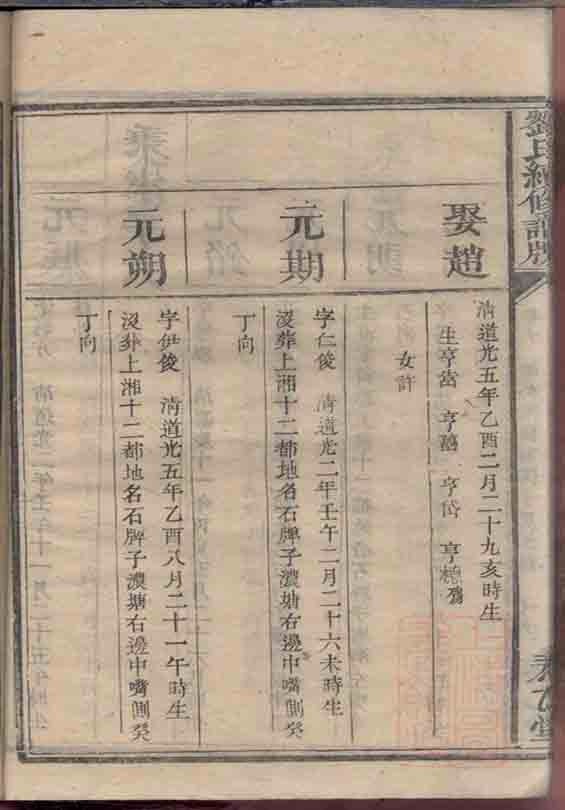 劉氏續修譜牒
娶趙
清道光五年乙酉二月二十九亥時生
生亨 亨 亨岱 亨 殤
女許
元期
字仁俊 清道光二年壬午二月二十六未時生
沒葬上湘十二都地名石牌子濃塘右邊中嘴側癸
丁向
元朔
字伊俊 清道光五年乙酉八月二十一午時生
沒葬上湘十二都地名石牌子濃塘右邊中嘴側癸
丁向